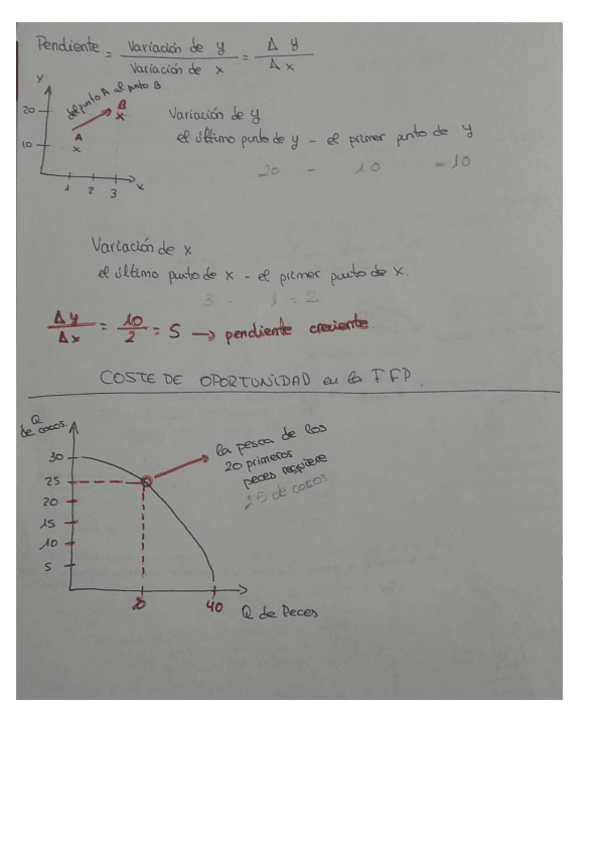 Pendiente = Variación de y / Variación de x = Δ y / Δ x
y
del punto A al punto B
20
B
x
A
x
10
1 2 3 x
Variación de y
el último punto de y - el primer punto de y
20 - 10 = 10
Variación de x
el último punto de x - el primer punto de x.
3 - 1 = 2
Δ y / Δ x = 10 / 2 = 5 → pendiente creciente
COSTE DE OPORTUNIDAD en la FFP
Q
de cocos.
30
25
20
15
10
5
la pesca de los
20 primeros
peces requiere
de cocos
20 40 Q de Peces